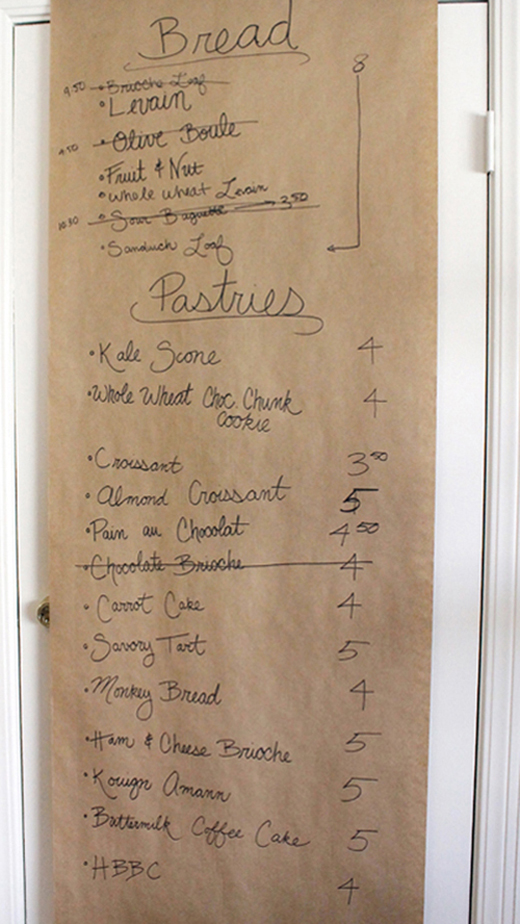 Bread
8
9:50 Brioche Loaf
Levain
9:50 Olive Boule
Fruit & Nut
Whole Wheat Levain
10:30 Sour Baguette 3.50
Sandwich Loaf
Pastries
Kale Scone 4
Whole Wheat Choc. Chunk 4
Cookie
Croissant 3.50
Almond Croissant 5
Pain au Chocolat 4.50
Chocolate Brioche 4
Carrot Cake 4
Savory Tart 5
Monkey Bread 4
Ham & Cheese Brioche 5
Kouign Amann 5
Buttermilk Coffee Cake 5
HBBC 4